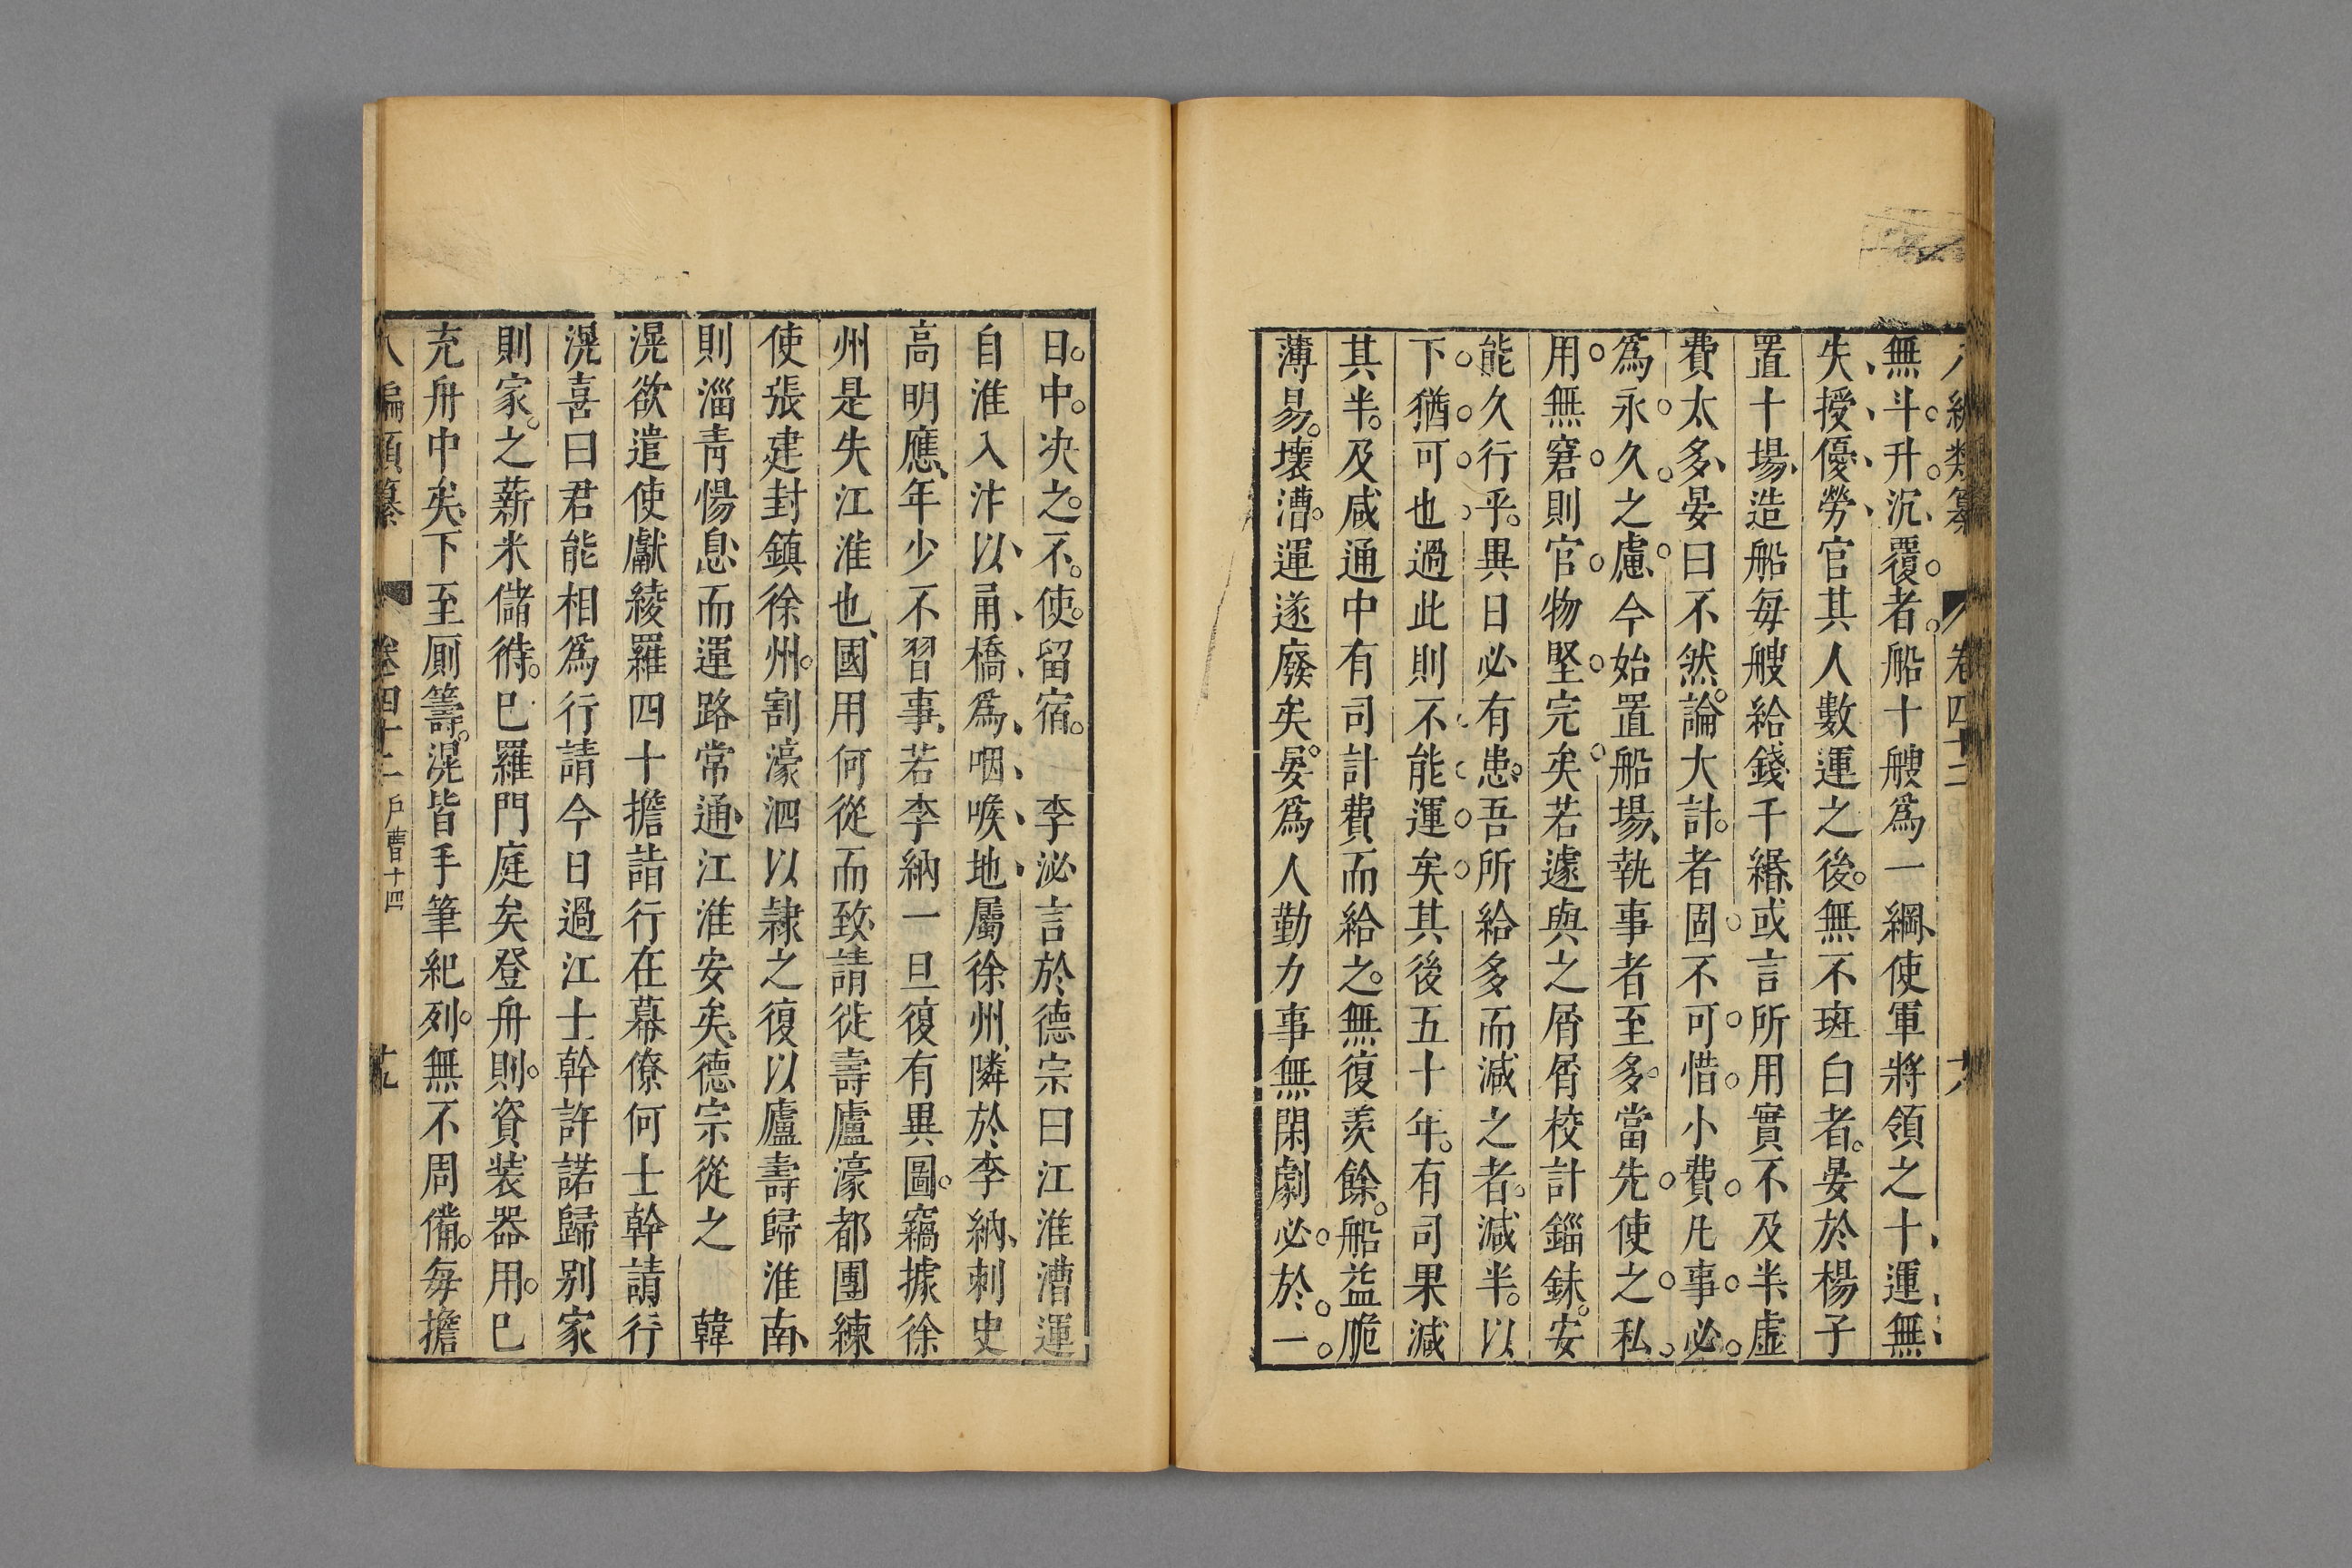 無斗升沉覆者船十艘爲一綱使軍將領之十運無
失授優勞官其人數運之後無不斑白者晏於楊子
置十場造船每艘給錢千緡或言所用實不及半虛
費太多晏曰不然論大計者固不可惜小費凡事必
爲永久之慮今始置船場執事者至多當先使之私
用無窘則官物堅完矣若遽與之屑屑校計錙銖安
能久行乎異日必有患吾所給多而減之者減半以
下猶可也過此則不能運矣其後五十年有司果減
其半及咸通中有司計費而給之無復羨餘船益脆
薄易壞漕運遂廢矣晏爲人勤力事無閑劇必於一
日中决之不使留宿　李泌言於德宗曰江淮漕運
自淮入汴以甬橋爲咽喉地屬徐州隣於李納刺史
高明應年少不習事若李納一旦復有異圖竊據徐
州是失江淮也國用何從而致請徙壽廬濠都團練
使張建封鎮徐州割濠泗以隷之復以廬壽歸淮南
則淄青惕息而運路常通江淮安矣德宗從之　韓
滉欲遣使獻綾羅四十擔詣行在幕僚何士幹請行
滉喜曰君能相爲行請今日過江士幹許諾歸別家
則家之薪米儲偫已羅門庭矣登舟則資裝器用已
充舟中矣下至厠籌滉皆手筆紀列無不周備每擔
八編類纂　卷四十二　戶曹十四　十九